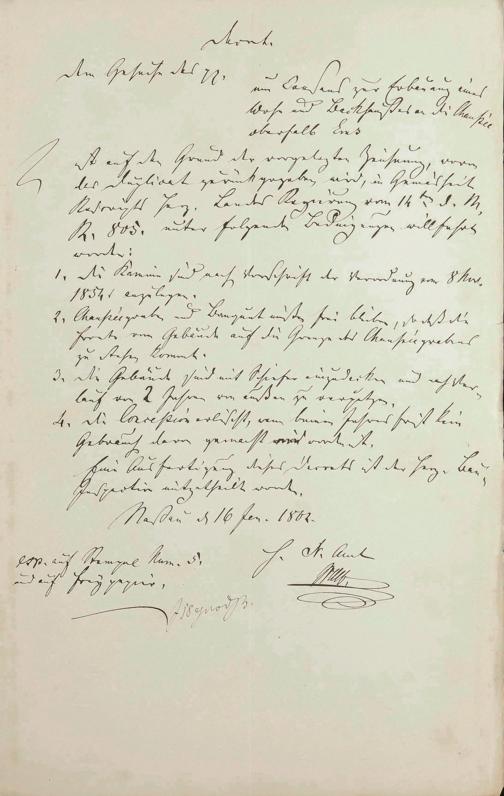 Decret.
Dem Gesuche des pp.
um Consens zur Erbauung eines
Wohn und Backhauses an die Chaussee
oberhalb Ems
ist auf den Grund der vorgelegten Zeichnung, wovon
das Duplicat zurückgegeben wird, in Gemäsheit
Rescripts Herz. Landes Regierung vom 14ten d. M.
R. 805. unter folgenden Bedingungen willfahrt
worden:
1. Die Kamine sind nach Vorschrift der Verordnung vom 8 Nov.
1854 anzulegen.
2. Chausseegraben und Banquet müssen frei bleiben, so daß die
Fronte vom Gebäude auf die Grenze des Chausseegrabens
zu stehen kommt.
3. Die Gebäude sind mit Schiefer einzudecken und nach Ver-
lauf von 2 Jahren von außen zu verputzen.
4. Die Concession erlischt, wenn binnen Jahresfrist kein
Gebrauch davon gemacht worden ist.
Eine Ausfertigung dieses Decrets ist der Herz. Bau-
Inspection mitgetheilt worden.
Nassau d 16 Jan. 1862.
H. N. Amt
exp. auf Stempel Num. 5.
und auf Freipapier.